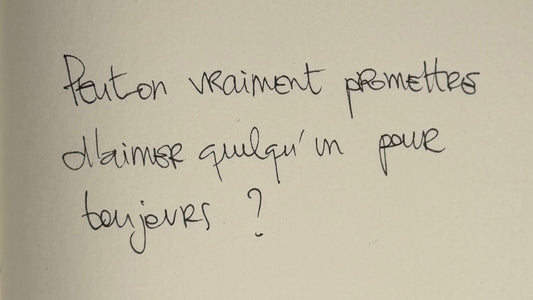 Peut-on vraiment promettre
d'aimer quelqu'un pour
toujours ?